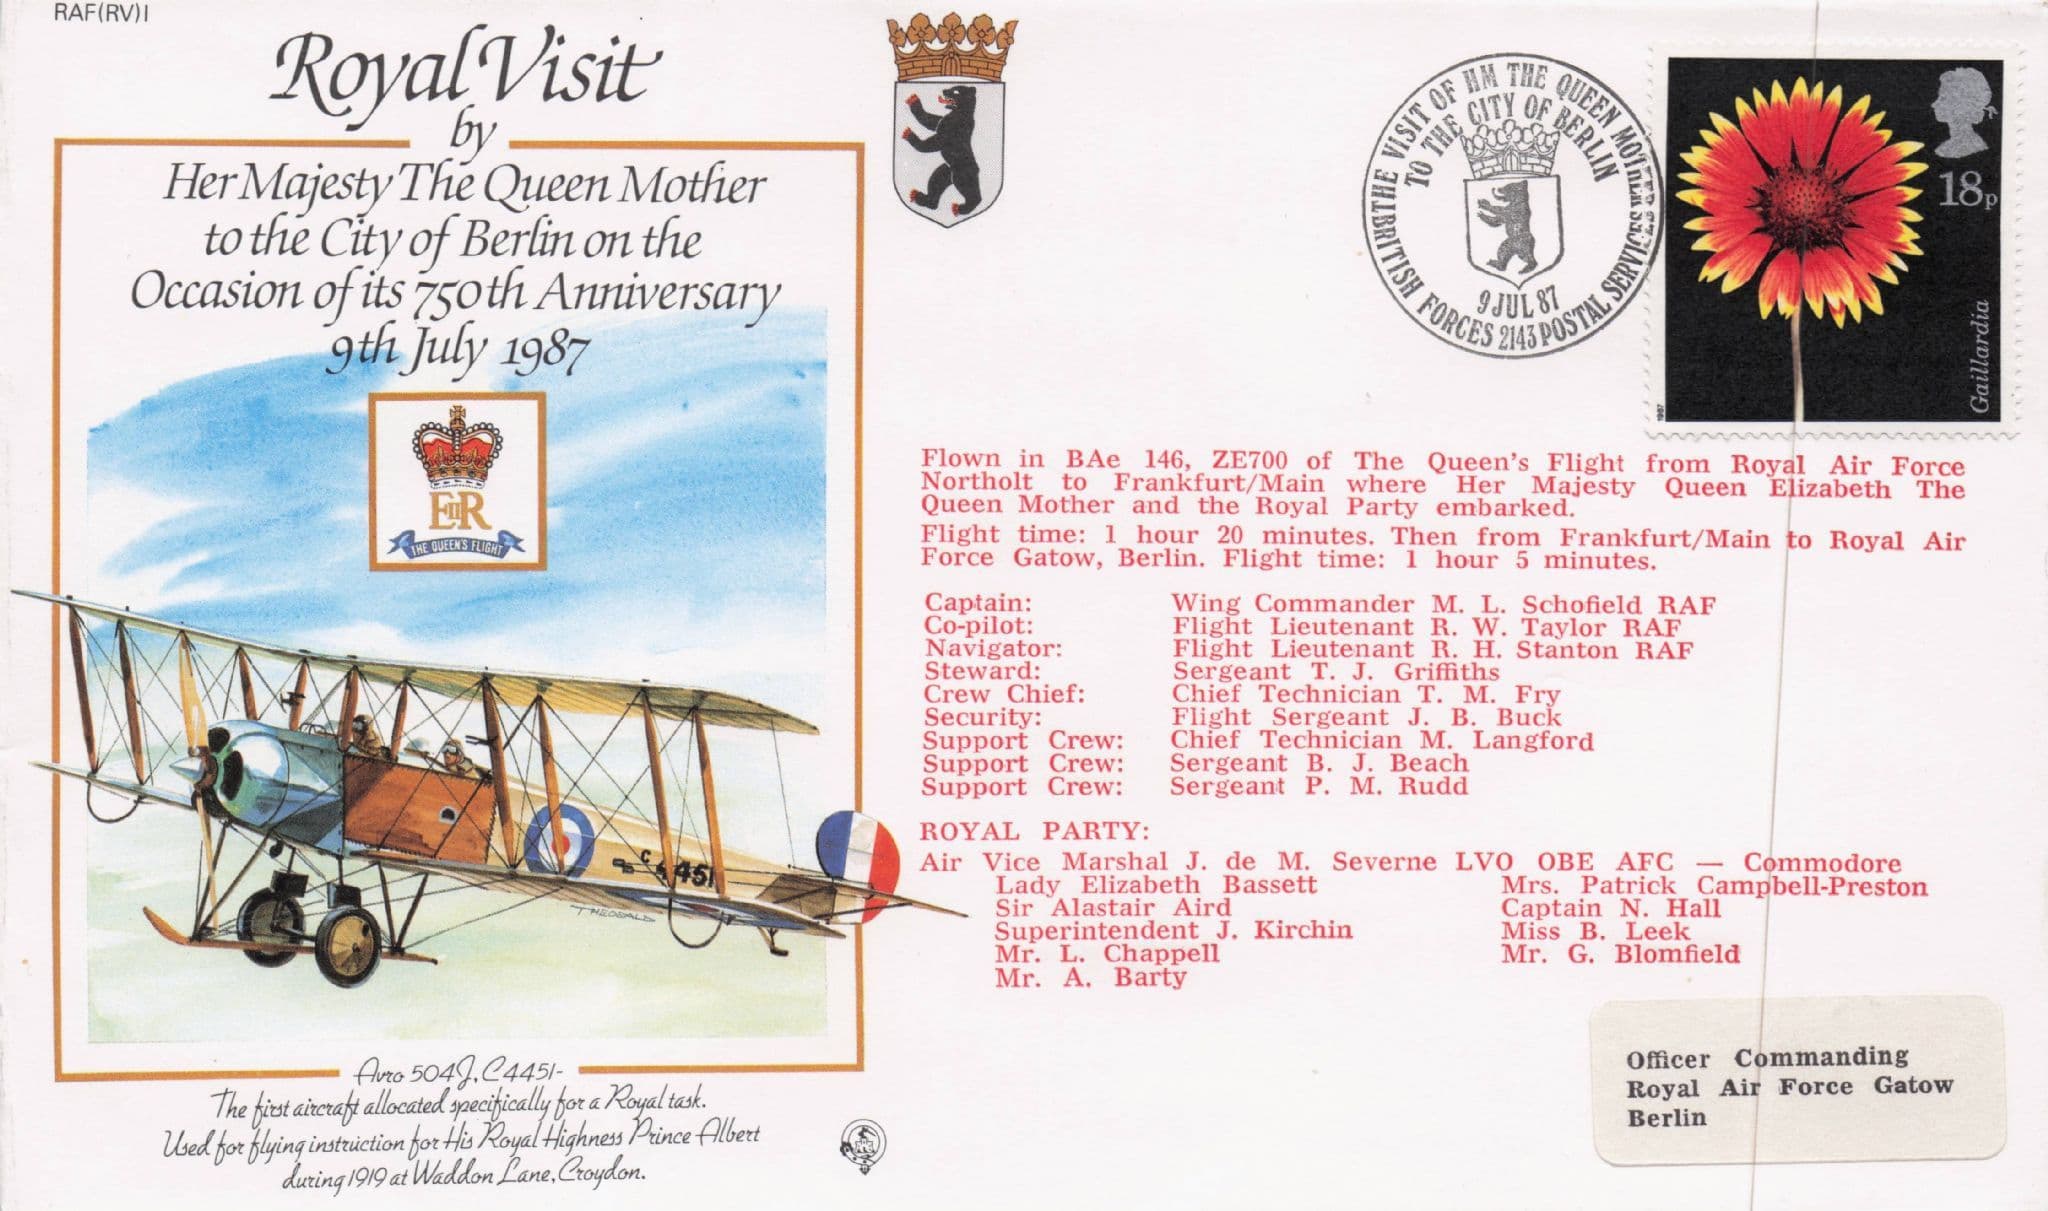 RAF(RV)1
Royal Visit
by
Her Majesty The Queen Mother
to the City of Berlin on the
Occasion of its 750th Anniversary
9th July 1987
EIIR
THE QUEEN'S FLIGHT
C
4451
THEOBALD
Avro 504J, C4451-
The first aircraft allocated specifically for a Royal task.
Used for flying instruction for His Royal Highness Prince Albert
during 1919 at Waddon Lane, Croydon.
THE VISIT OF HM THE QUEEN MOTHER
TO THE CITY OF BERLIN
9 JUL 87
BRITISH FORCES 2143 POSTAL SERVICES
18p
Gaillardia
1987
Flown in BAe 146, ZE700 of The Queen's Flight from Royal Air Force
Northolt to Frankfurt/Main where Her Majesty Queen Elizabeth The
Queen Mother and the Royal Party embarked.
Flight time: 1 hour 20 minutes. Then from Frankfurt/Main to Royal Air
Force Gatow, Berlin. Flight time: 1 hour 5 minutes.
Captain: Wing Commander M. L. Schofield RAF
Co-pilot: Flight Lieutenant R. W. Taylor RAF
Navigator: Flight Lieutenant R. H. Stanton RAF
Steward: Sergeant T. J. Griffiths
Crew Chief: Chief Technician T. M. Fry
Security: Flight Sergeant J. B. Buck
Support Crew: Chief Technician M. Langford
Support Crew: Sergeant B. J. Beach
Support Crew: Sergeant P. M. Rudd
ROYAL PARTY:
Air Vice Marshal J. de M. Severne LVO OBE AFC — Commodore
Lady Elizabeth Bassett Mrs. Patrick Campbell-Preston
Sir Alastair Aird Captain N. Hall
Superintendent J. Kirchin Miss B. Leek
Mr. L. Chappell Mr. G. Blomfield
Mr. A. Barty
Officer Commanding
Royal Air Force Gatow
Berlin